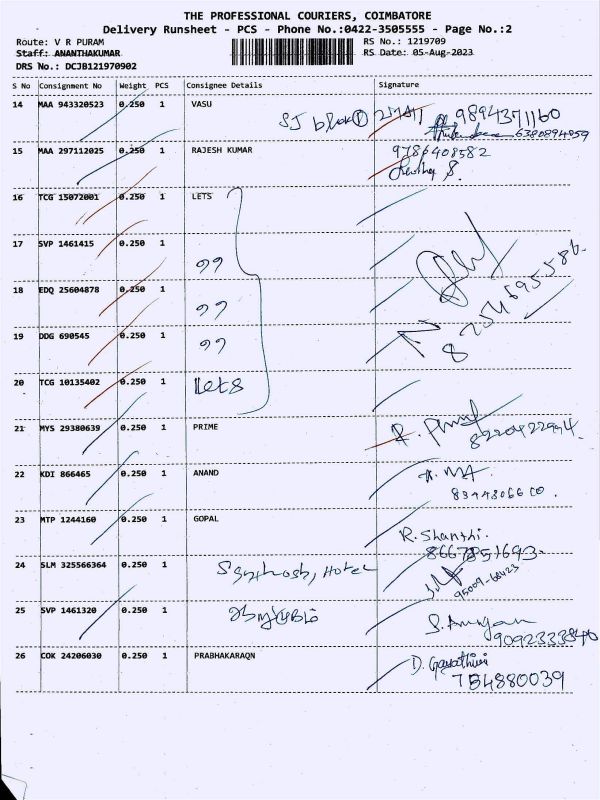 THE PROFESSIONAL COURIERS, COIMBATORE
Delivery Runsheet - PCS - Phone No.:0422-3505555 - Page No.:2
Route: V R PURAM RS No.: 1219709
Staff: ANANTHAKUMAR RS Date: 05-Aug-2023
DRS No.: DCJB121970902
S No Consignment No Weight PCS Consignee Details Signature
14 MAA 943320523 0.250 1 VASU 9894371160
6380894059
15 MAA 297112025 0.250 1 RAJESH KUMAR 9786408582
16 TCG 15072001 0.250 1 LETS
17 SVP 1461415 0.250 1 ”
18 EDQ 25604878 0.250 1 ”
19 DDG 690545 0.250 1 ”
20 TCG 10135402 0.250 1 Lets
21 MYS 29380639 0.250 1 PRIME
22 KDI 866465 0.250 1 ANAND
23 MTP 1244160 0.250 1 GOPAL R. Shanthi.
8667851693.
24 SLM 325566364 0.250 1 Santhosh, Hotel 95009-68423
25 SVP 1461320 0.250 1
9092333840
26 COK 24206030 0.250 1 PRABHAKARAQN D. Gayathiri
754880039